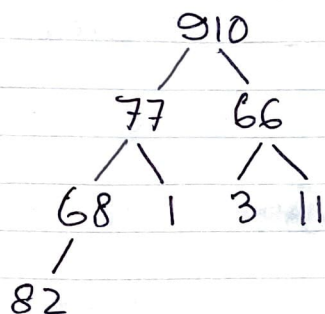 910
77 66
68 1 3 11
82